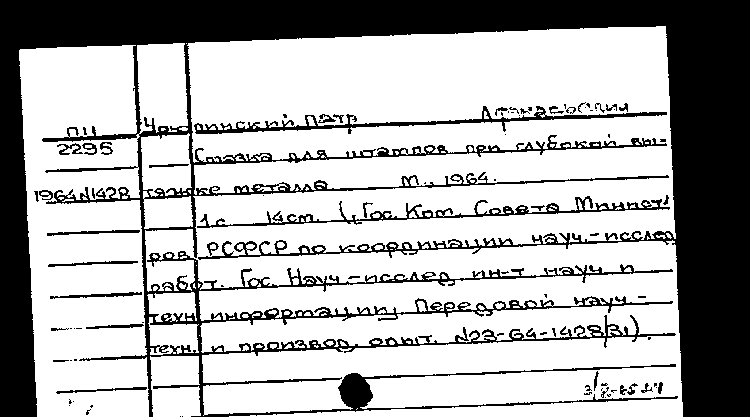 ПЦ Урюпинский, Петр Афанасьевич
2295 Смазка для штампов при глубокой вы-
1964 N1428 тяжке металла М., 1964.
1 с 14 см. (Гос. Ком. Совета Минист
ров РСФСР по координации науч.-исслед
работ. Гос. Науч.-исслед. ин-т науч. и
техн. информации. Передовой науч.-
техн. и производ. опыт. N23-64-1428/31).